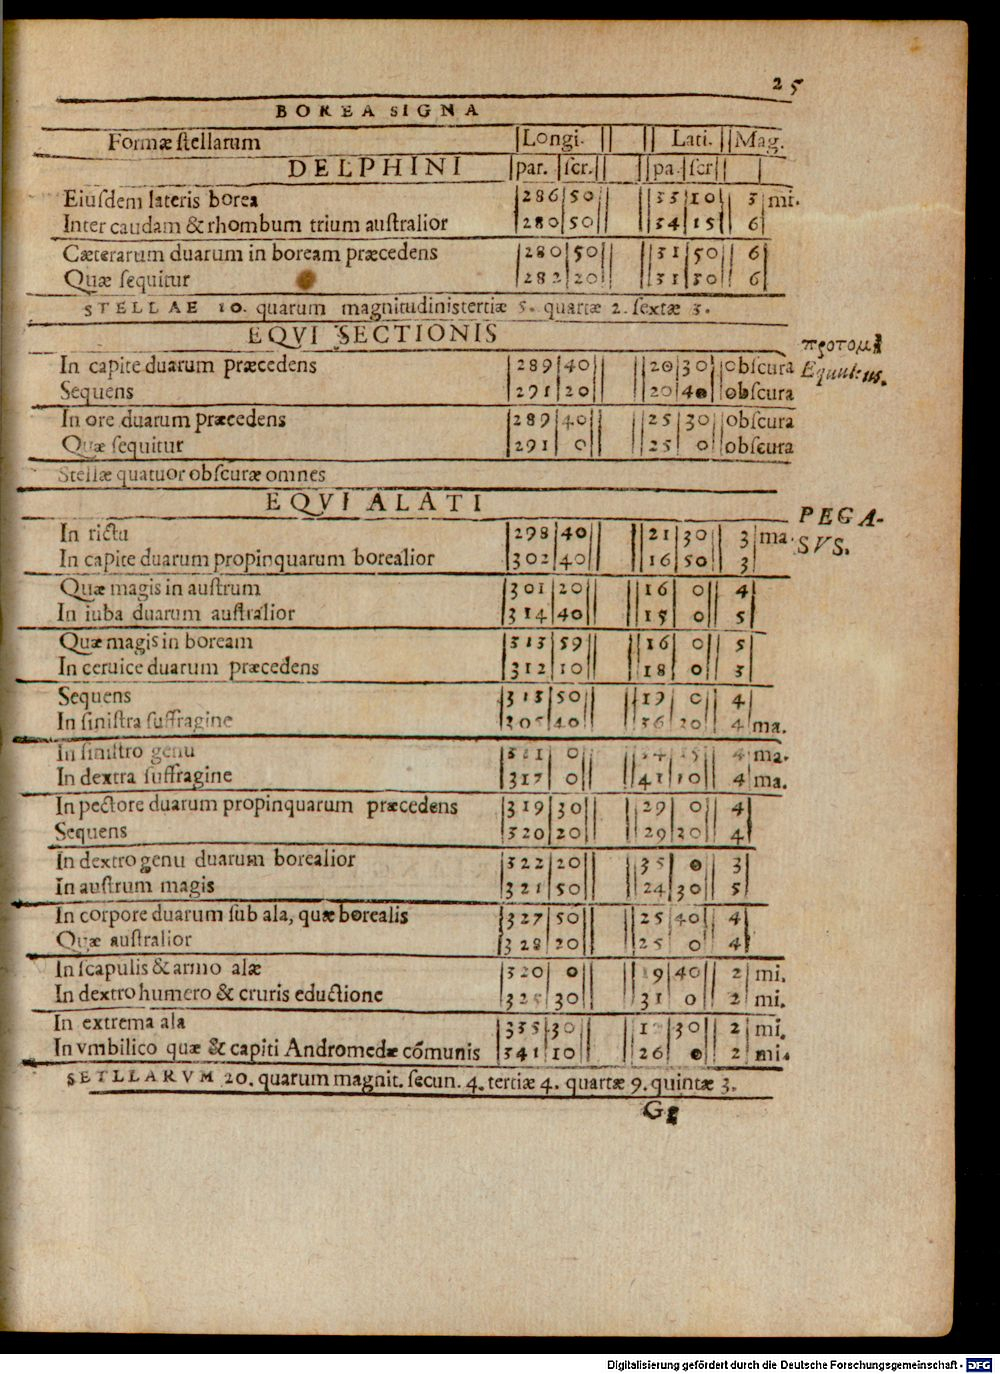 25
BOREA SIGNA
Formæ stellarum | Longi. | Lati. | Mag.
DELPHINI | par. | scr. | pa. | scr |
Eiusdem lateris borea 286 50 33 10 3 mi.
Inter caudam & rhombum trium australior 280 50 34 15 6
Cæterarum duarum in boream præcedens 280 50 31 50 6
Quæ sequitur 282 20 31 30 6
STELLAE 10. quarum magnitudinis tertiæ 5. quartæ 2. sextæ 3.
EQVI SECTIONIS
In capite duarum præcedens 289 40 20 30 obscura
προτομὴ
Equuleus.
Sequens 291 20 20 40 obscura
In ore duarum præcedens 289 40 25 30 obscura
Quæ sequitur 291 0 25 0 obscura
Stellæ quatuor obscuræ omnes
EQVI ALATI
PEGA-
SVS.
In rictu 298 40 21 30 3 ma.
In capite duarum propinquarum borealior 302 40 16 50 3
Quæ magis in austrum 301 20 16 0 4
In iuba duarum australior 314 40 15 0 5
Quæ magis in boream 313 59 16 0 5
In ceruice duarum præcedens 312 10 18 0 3
Sequens 313 50 19 0 4
In sinistra suffragine 305 40 36 20 4 ma.
In sinistro genu 311 0 34 15 4 ma.
In dextra suffragine 317 0 41 10 4 ma.
In pectore duarum propinquarum præcedens 319 30 29 0 4
Sequens 320 20 29 30 4
In dextro genu duarum borealior 322 20 35 0 3
In austrum magis 321 50 24 30 5
In corpore duarum sub ala, quæ borealis 327 50 25 40 4
Quæ australior 328 20 25 0 4
In scapulis & armo alæ 320 0 19 40 2 mi.
In dextro humero & cruris eductione 325 30 31 0 2 mi.
In extrema ala 335 30 12 30 2 mi.
In vmbilico quæ & capiti Andromedæ cōmunis 341 10 26 0 2 mi.
SETLLARVM 20. quarum magnit. secun. 4. tertiæ 4. quartæ 9. quintæ 3.
Gg
Digitalisierung gefördert durch die Deutsche Forschungsgemeinschaft - DFG